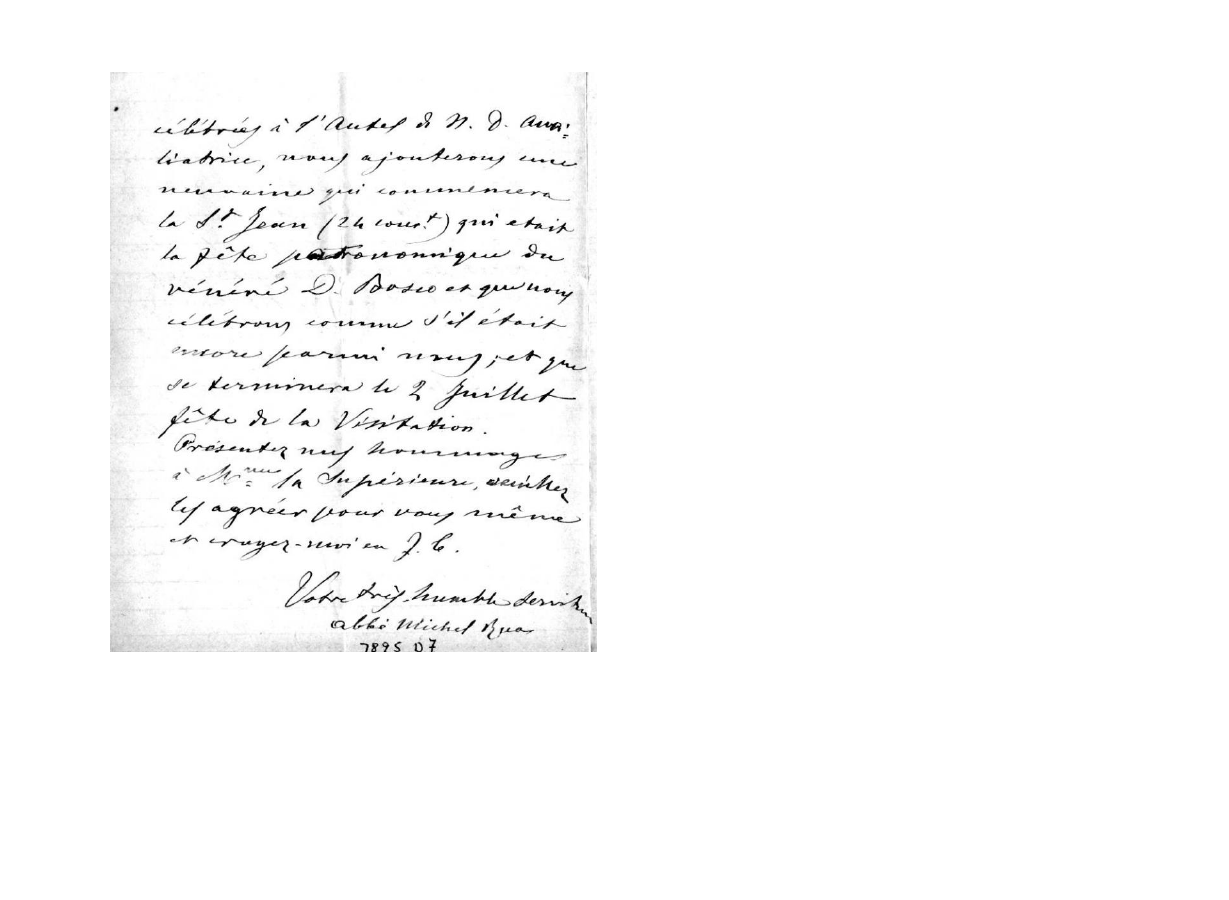 célébrées à l'Autel de N. D. Auxi=
liatrice, nous ajouterons une
neuvaine qui commencera
la St Jean (24 court) qui etait
la fête patronomique du
vénéré D. Bosco et que nous
célébrons comme s'il était
encore parmi nous, et que
se terminera le 2 Juillet
fête de la Visitation.
Présentez mes hommages
à Mme la Supérieure, veuillez
les agréer pour vous même
et croyez-moi en J. C.
Votre très humble serviteur
abbé Michel Rua
7895 D7